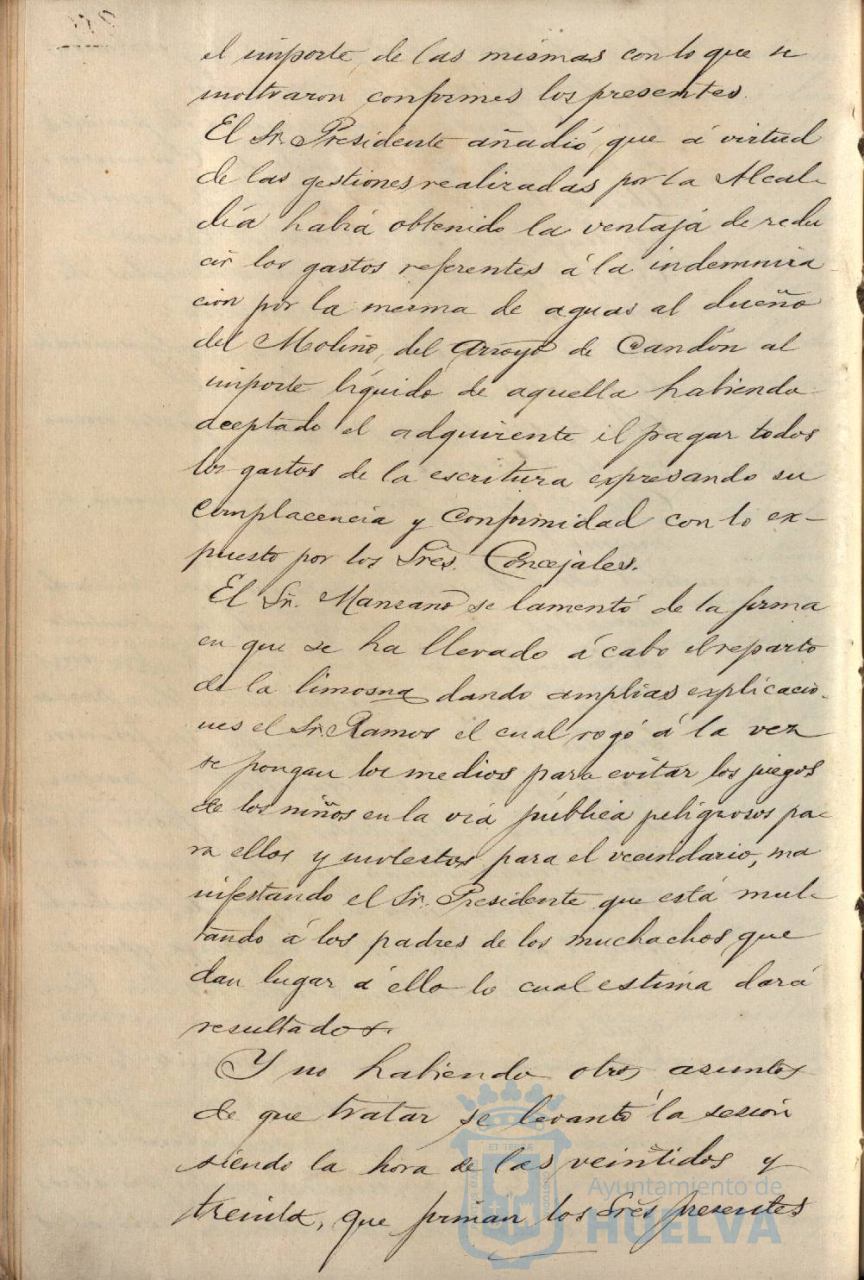 el importe de las mismas con lo que se
mostraron conformes los presentes.
El Sr. Presidente añadió que á virtud
de las gestiones realizadas por la Alcal-
día habia obtenido la ventaja de redu
cir los gastos referentes á la indemniza
cion por la merma de aguas al dueño
del Molino del Arroyo de Candón al
importe líquido de aquella habiendo
aceptado el adquirente el pagar todos
los gastos de la escritura expresando su
complacencia y conformidad con lo ex-
puesto por los Sres. Concejales.
El Sr. Manzano se lamentó de la forma
en que se ha llevado á cabo el reparto
de la limosna dando amplias explicacio-
nes el Sr. Ramos el cual rogó á la vez
se pongan los medios para evitar los juegos
de los niños en la via pública peligrosos pa-
ra ellos y molestos para el vecindario, ma
nifestando el Sr. Presidente que está mul-
tando á los padres de los muchachos que
dan lugar á ello lo cual estima dará
resultados.
Y no habiendo otros asuntos
de que tratar se levantó la sesión
siendo la hora de las veintidos y
treinta, que firman los Sres presentes
Ayuntamiento de
HUELVA